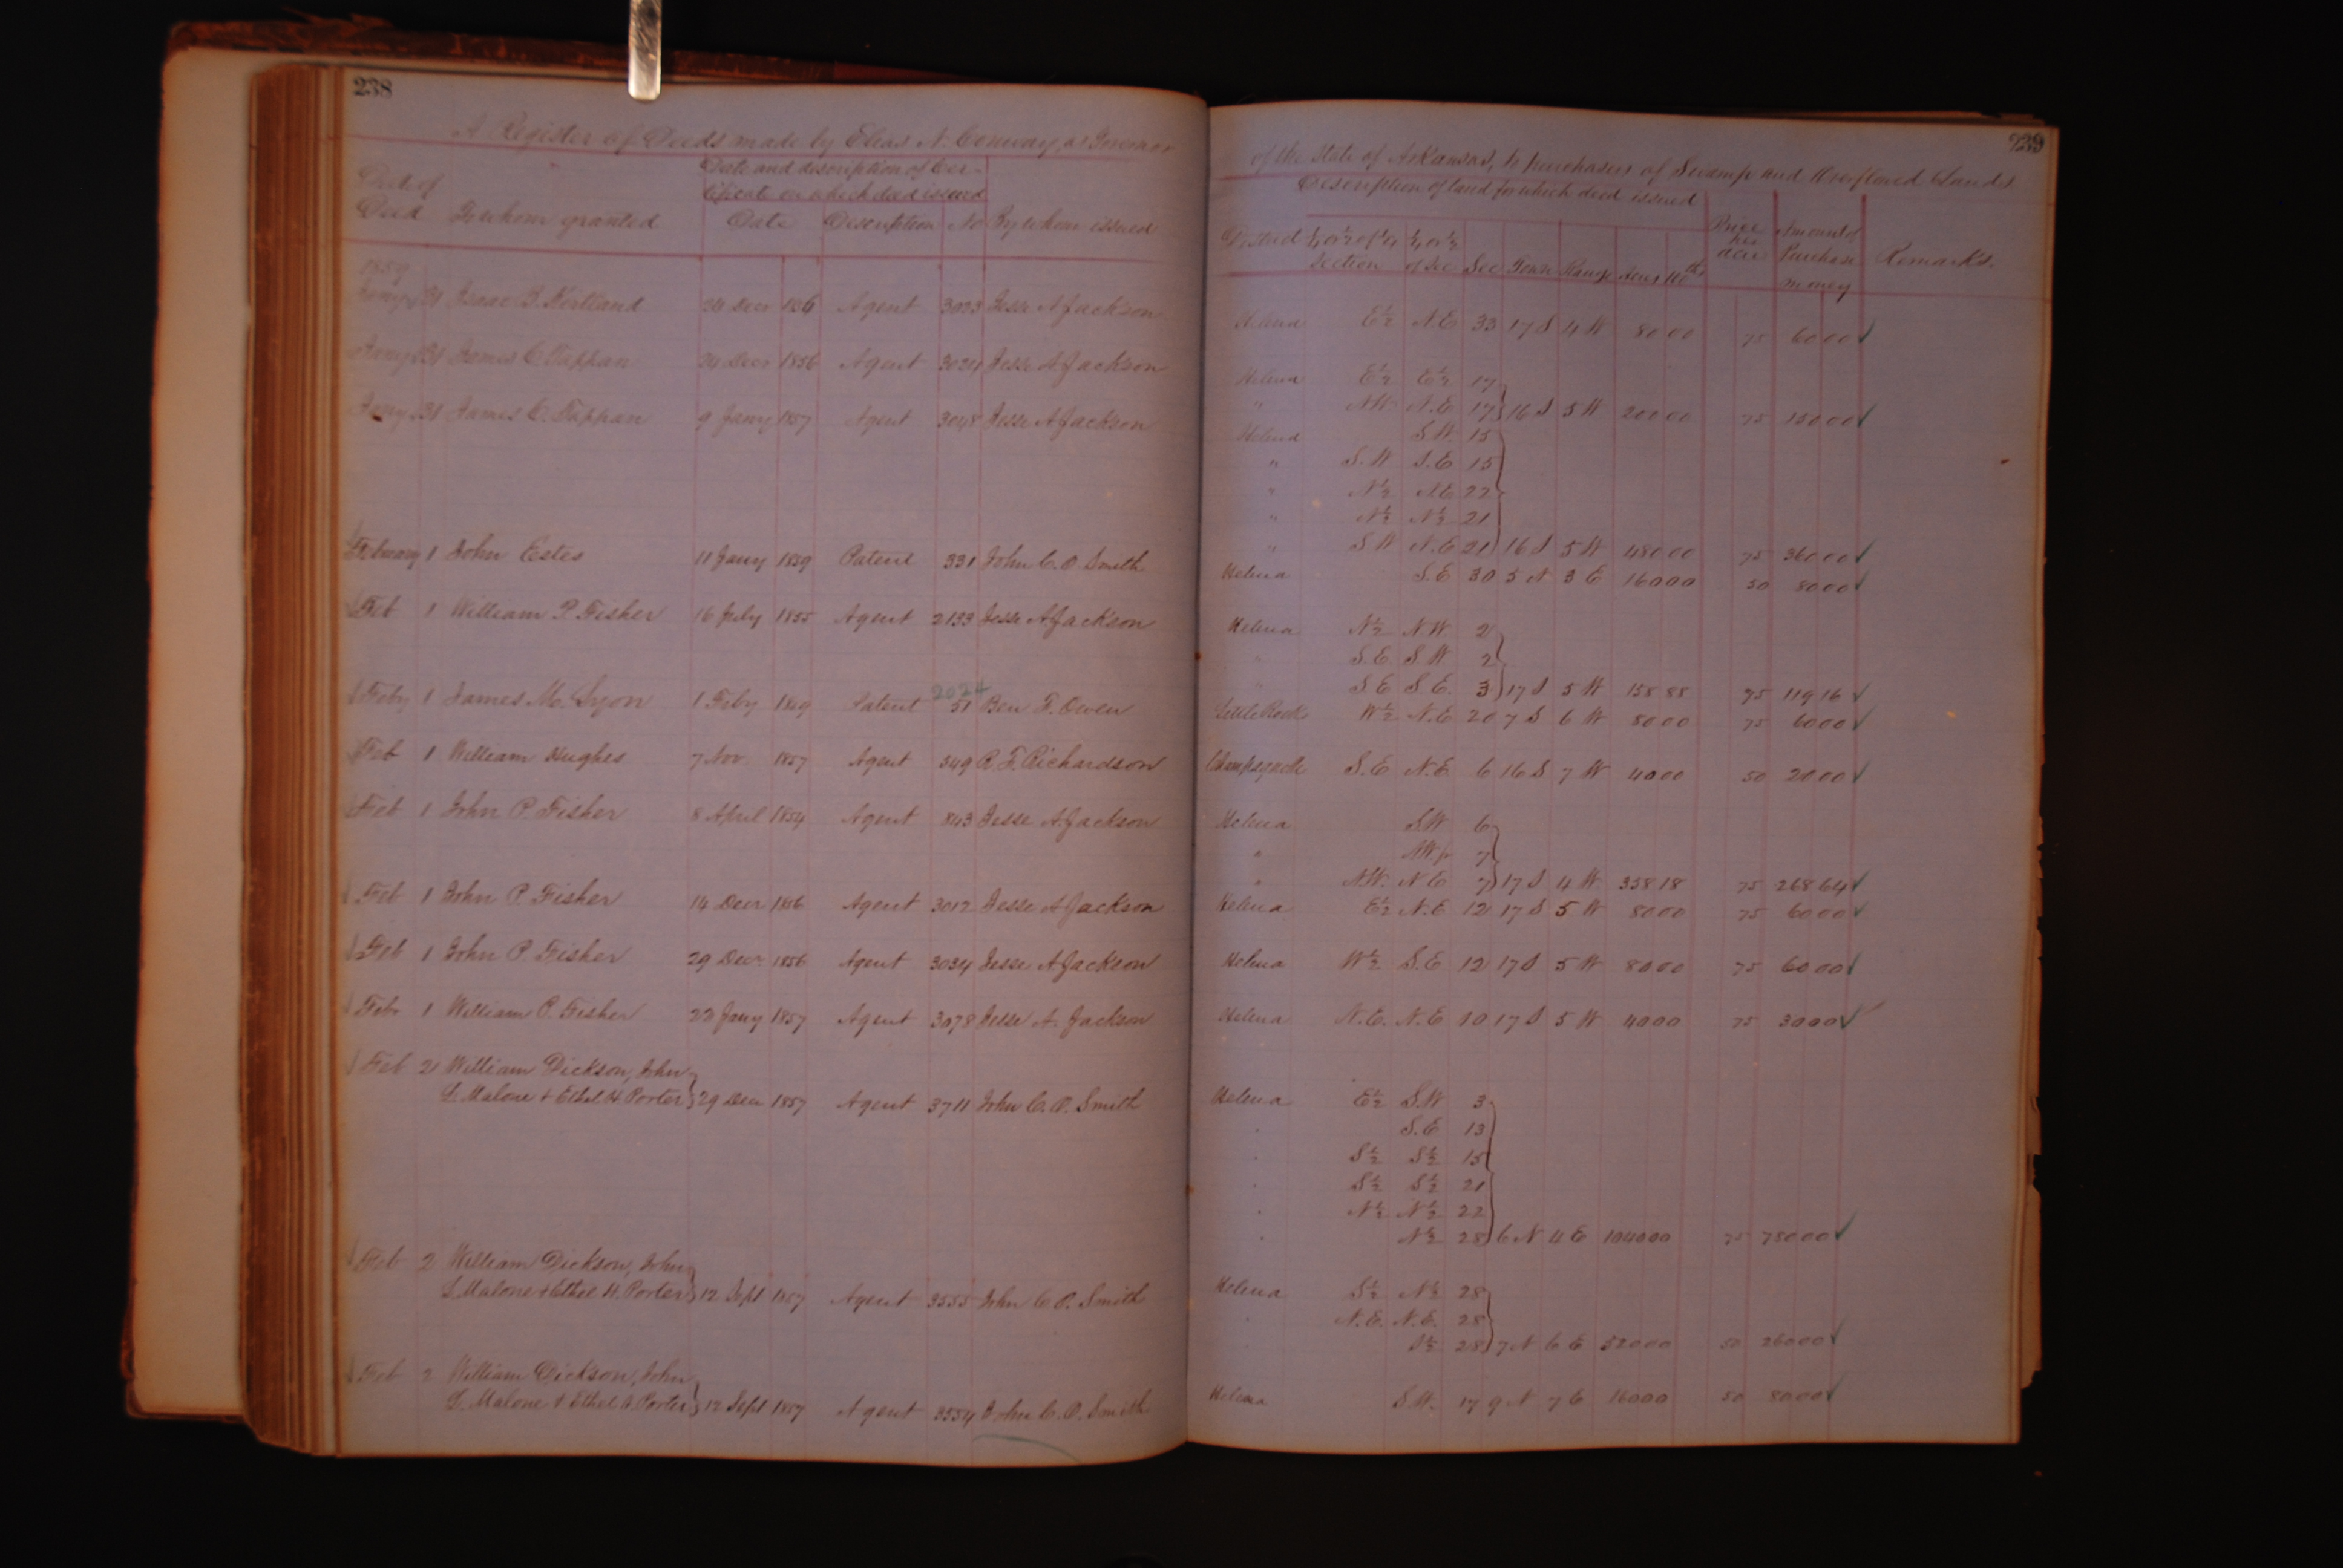 238
A Register of Deeds made by Elias N. Conway, as Governor
Date of Deed To whom granted Date and description of Certificate on which deed issued
Date Description No By whom issued
1859
Jany 31 Isaac B. Kirtland 24 Decr 1856 Agent 3023 Jesse A Jackson
Jany 31 James C. Tappan 24 Decr 1856 Agent 3024 Jesse A Jackson
Jany 31 James C. Tappan 9 Jany 1857 Agent 3048 Jesse A Jackson
February 1 John Estes 11 Jany 1859 Patent 331 John C. O. Smith
Feb 1 William P. Fisher 16 July 1855 Agent 2133 Jesse A Jackson
2024
Feby 1 James M. Lyon 1 Feby 1859 Patent 51 Ben F. Owen
Feb 1 William Hughes 7 Nov 1857 Agent 549 R. F. Richardson
Feb 1 John P. Fisher 8 April 1854 Agent 843 Jesse A Jackson
Feb 1 John P. Fisher 14 Decr 1856 Agent 3012 Jesse A Jackson
Feb 1 John P. Fisher 29 Decr 1856 Agent 3034 Jesse A Jackson
Feb 1 William P. Fisher 22 Jany 1857 Agent 3078 Jesse A. Jackson
Feb 2 William Dickson, John
L. Malone & Ethel H. Porter 29 Decr 1857 Agent 3711 John C. O. Smith
Feb 2 William Dickson, John
L. Malone & Ethel H. Porter 12 Sept 1857 Agent 3555 John C. O. Smith
Feb 2 William Dickson, John
L. Malone & Ethel H. Porter 12 Sept 1857 Agent 3554 John C. O. Smith
239
of the State of Arkansas, to purchasers of Swamp and Overflowed Lands
Description of land for which deed issued
District ¼ or ½ of ¼ Section ¼ or ½ of Sec Sec Town Range Acres 100ths Price per acre Amount of Purchase money Remarks.
Helena E½ N.E 33 17 S 4 W 80 00 75 60 00 ✓
Helena E½ E½ 17
" NW N.E 17 16 S 5 W 200 00 75 150 00 ✓
Helena S.W. 15
" S.W S.E 15
" N½ N.E 22
" N½ N½ 21
" S W N.E 21 16 S 5 W 480 00 75 360 00 ✓
Helena S.E 30 5 N 3 E 160 00 50 80 00 ✓
Helena N½ N.W. 2
" S.E S.W 2
" S.E S.E. 3 17 S 5 W 158 88 75 119 16 ✓
Little Rock W½ N.E 20 7 S 6 W 80 00 75 60 00 ✓
Champagnole S.E N.E 6 16 S 7 W 40 00 50 20 00 ✓
Helena S.W 6
" N.W fr 7
" N.W. N E 7 17 S 4 W 358 18 75 268 64 ✓
Helena E½ N.E 12 17 S 5 W 80 00 75 60 00 ✓
Helena W½ S.E 12 17 S 5 W 80 00 75 60 00 ✓
Helena N.E. N.E 10 17 S 5 W 40 00 75 30 00 ✓
Helena E½ S.W 3
" S.E 13
" S½ S½ 15
" S½ S½ 21
" N½ N½ 22
" N½ 28 6 N 4 E 1040 00 75 780 00 ✓
Helena S½ N½ 28
" N.E. N.E. 28
" S½ 28 7 N 6 E 520 00 50 260 00 ✓
Helena S.W. 17 9 N 7 E 160 00 50 80 00 ✓